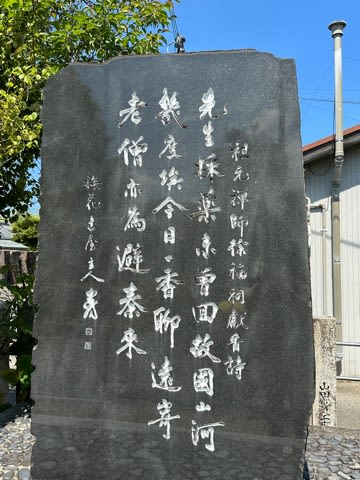 祖元禅師徐福祠献香詩
先生採薬未曽回故国山河
幾度埃今日一香聊遠寄
老僧亦為避秦来
主人